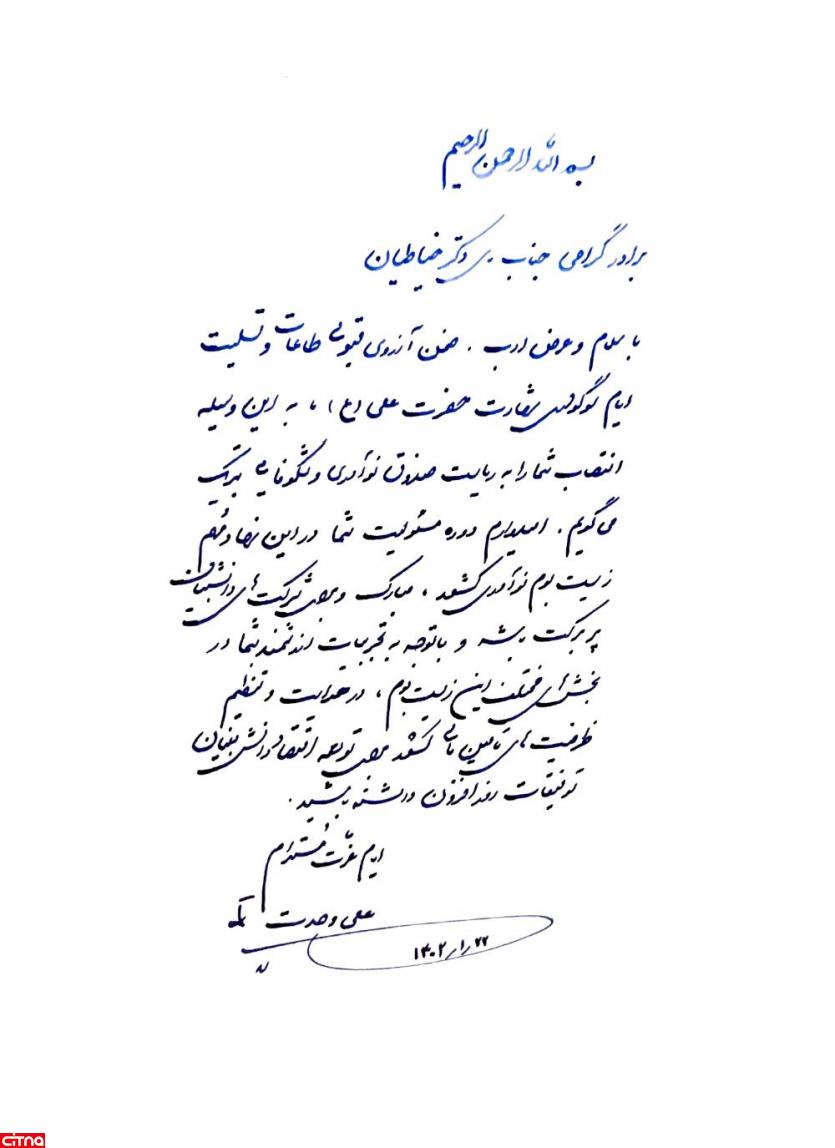 بسم الله الرحمن الرحیم
برادر گرامی جناب آقای دکتر خیاطیان
با سلام و عرض ادب. ضمن آرزوی قبولی طاعات و تسلیت
ایام سوگواری شهادت حضرت علی (ع)، به این وسیله
انتصاب شما را به ریاست صندوق نوآوری و شکوفایی تبریک
می گویم. امیدوارم دوره مسئولیت شما در این نهاد مهم
زیست بوم نوآوری کشور، مبارک و برای شرکت های دانش بنیان
پر برکت باشد و با توجه به تجربیات ارزشمند شما در
بخش های مختلف این زیست بوم، در هدایت و تنظیم
ظرفیت های تامین مالی کشور برای توسعه اقتصاد دانش بنیان
توفیقات روزافزون داشته باشید.
ایام عزت مستدام
علی وحدت
۱۴۰۲/۱/۲۲
CITNA